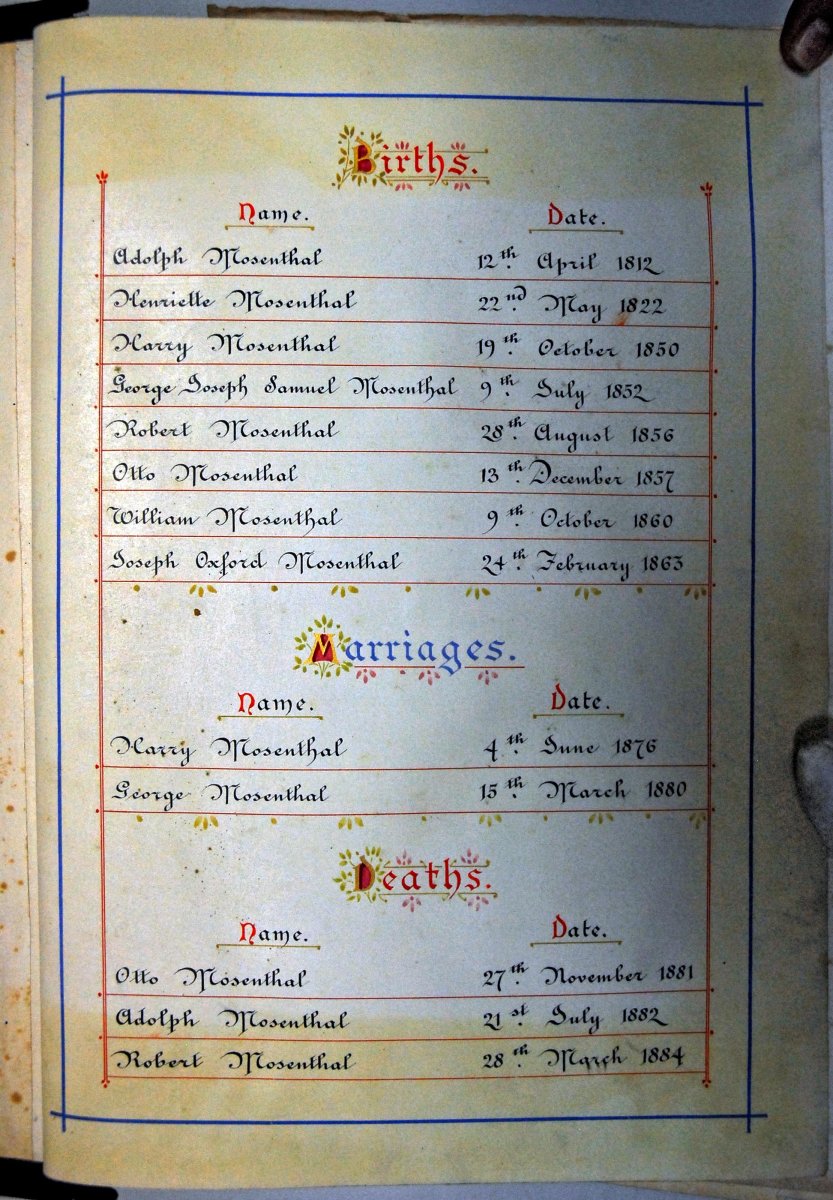 Births.
Name. Date.
Adolph Mosenthal 12th April 1812
Henriette Mosenthal 22nd May 1822
Harry Mosenthal 19th October 1850
George Joseph Samuel Mosenthal 9th July 1852
Robert Mosenthal 28th August 1856
Otto Mosenthal 13th December 1857
William Mosenthal 9th October 1860
Joseph Oxford Mosenthal 24th February 1863
Marriages.
Name. Date.
Harry Mosenthal 4th June 1876
George Mosenthal 15th March 1880
Deaths.
Name. Date.
Otto Mosenthal 27th November 1881
Adolph Mosenthal 21st July 1882
Robert Mosenthal 28th March 1884